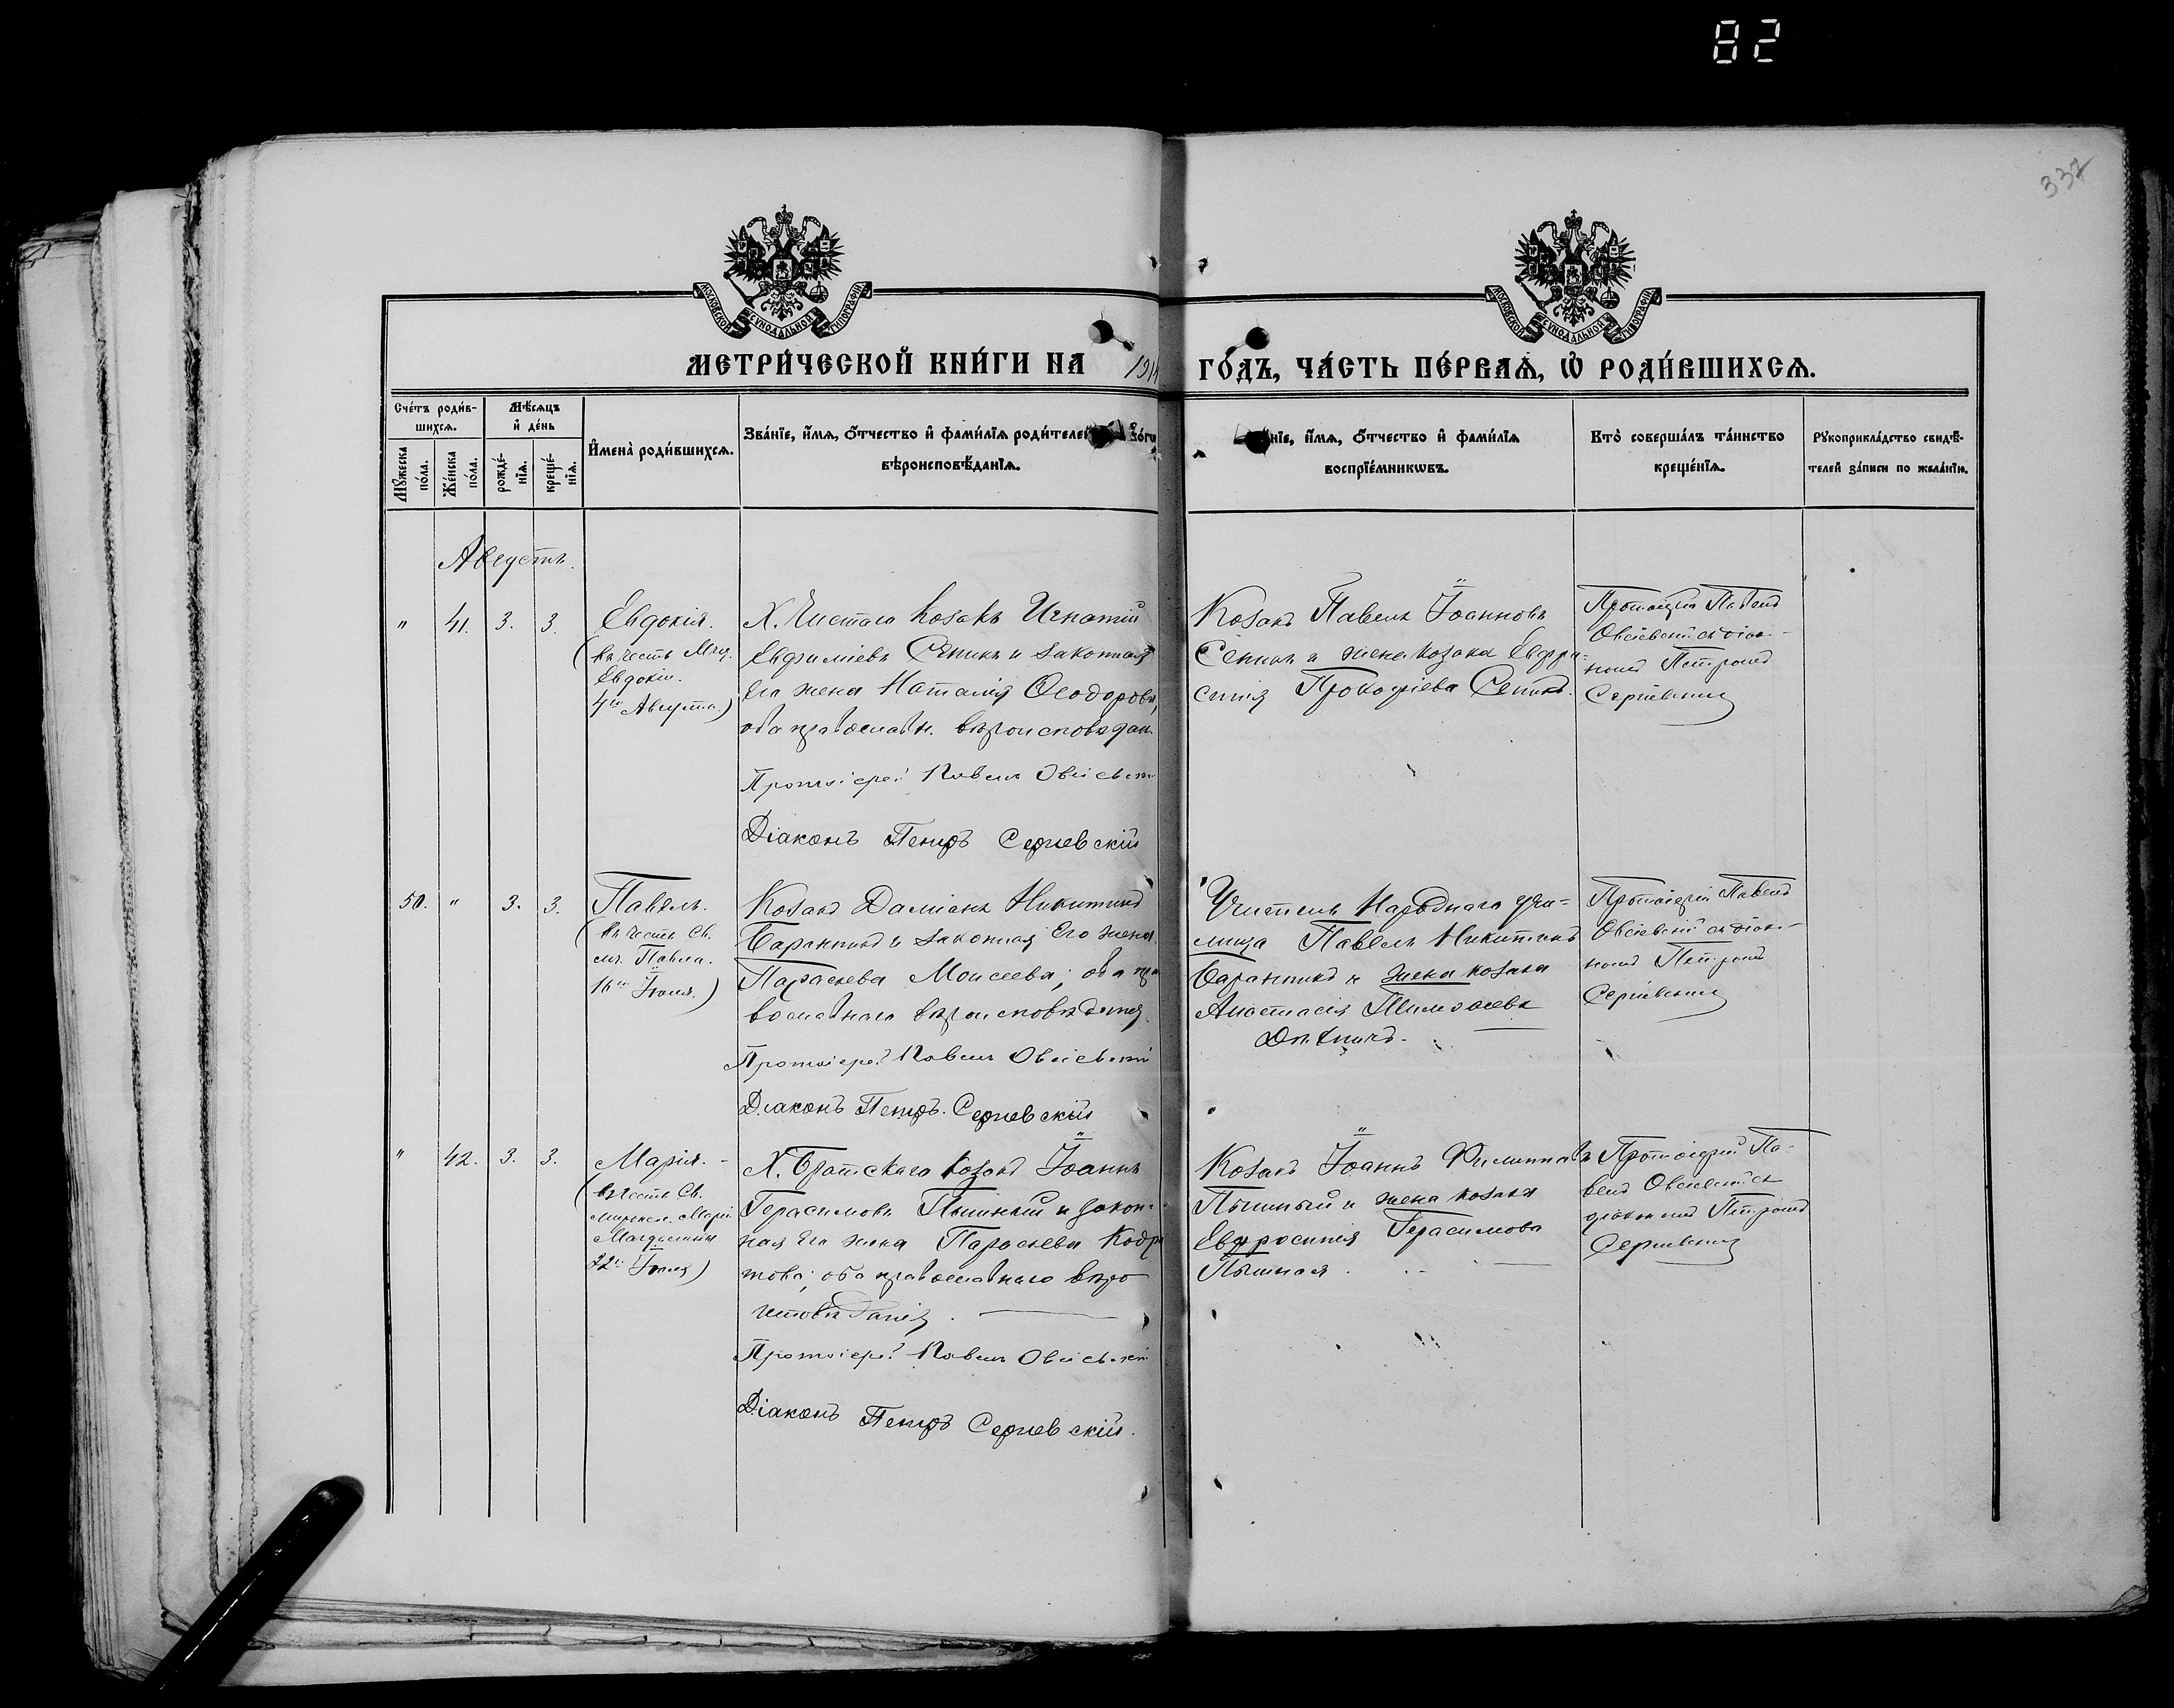 82
337
МОСКОВСКОЙ СѴНОДАЛЬНОЙ ТИПОГРАФІИ
МОСКОВСКОЙ СѴНОДАЛЬНОЙ ТИПОГРАФІИ
МЕТРИ́ЧЕСКОЙ КНИ́ГИ НА 191
ГО́ДЪ, ЧА́СТЬ ПЕ́РВАѦ, Ѡ РОДИ́ВШИХСѦ.
Сче́тъ роди́в-
шихсѧ.
Мꙋжеска по́ла.
Же́нска по́ла.
Мѣ́сѧцъ
и҆ де́нь
рожде́-нїѧ.
креще́-нїѧ.
И҆мена̀ роди́вшихсѧ.
Зва́нїе, и҆́мѧ, о҆́тчество и҆ фами́лїѧ роди́телей
вѣроисповѣ́данїѧ.
нїе, и҆́мѧ, о҆́тчество и҆ фами́лїѧ
воспрїе́мникωвъ.
Кто̀ соверша́лъ та́инство
креще́нїѧ.
Рꙋкоприкла́дство свидѣ́-
телей за́писи по жела́нїю.
Августъ.
" 41. 3. 3.
Евдокія.
(въ честь Мчц.
Евдокіи.
4го Августа.)
Х. Чистаго козакъ Игнатій
Евфиміевъ Сѣпикъ и законная
его жена Наталія Ѳеодорова,
оба православн. вѣроисповѣдан.
Протоіерей Павелъ Овсіевскій
Діаконъ Петръ Сергіевскій
Козакъ Павелъ Іоанновъ
и жена козака Евфро-
синія Прокофіева
Протоіерей Павелъ
Овсіевскій съ діако-
номъ Петромъ
Сергіевскимъ
50. " 3. 3.
Павелъ.
(въ честь Св.
мч. Павла.
16го Іюля.)
Козакъ Даміанъ Никитинъ
Баранникъ и законная его жена
Параскева Моисеева; оба пра
вославнаго вѣроисповѣданія.
Протоіерей Павелъ Овсіевскій
Діаконъ Петръ Сергіевскій
Учитель Народнаго учи=
лища Павелъ Никитинъ
Баранникъ и жена козака
Анастасія Тимоѳеева
Протоіерей Павелъ
Овсіевскій съ діако-
номъ Петромъ
Сергіевскимъ
" 42. 3. 3.
Марія.
(въ честь Св.
мироно. Маріи
Магдалины
22го Іюля)
Х. Братскаго козакъ Іоаннъ
Герасимовъ Пышный и закон-
ная его жена Параскева Кодра
това; оба православнаго вѣро
исповѣданія.
Протоіерей Павелъ Овсіевскій
Діаконъ Петръ Сергіевскій.
Козакъ Іоаннъ Филипповъ
Пышный и жена козака
Евфросинія Герасимова
Пышная.
Протоіерей Па-
велъ Овсіевскій съ
діакономъ Петромъ
Сергіевскимъ